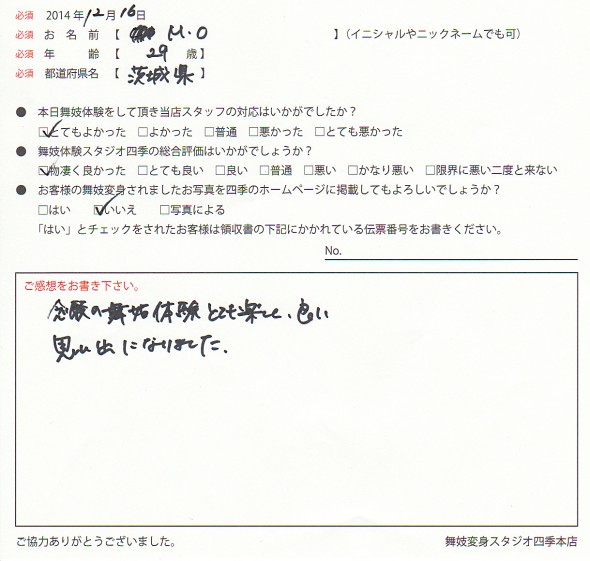 必須 2014年12月16日
必須 お名前【 M.O 】(イニシャルやニックネームでも可)
必須 年齢【 29 歳】
必須 都道府県名【 茨城県 】
● 本日舞妓体験をして頂き当店スタッフの対応はいかがでしたか?
☑とてもよかった □よかった □普通 □悪かった □とても悪かった
● 舞妓体験スタジオ四季の総合評価はいかがでしょうか?
☑物凄く良かった □とても良い □良い □普通 □悪い □かなり悪い □限界に悪い二度と来ない
● お客様の舞妓変身されましたお写真を四季のホームページに掲載してもよろしいでしょうか?
□はい ☑いいえ □写真による
「はい」とチェックをされたお客様は領収書の下記にかかれている伝票番号をお書きください。
No.
ご感想をお書き下さい。
念願の舞妓体験とても楽しく、良い
思い出になりました。
ご協力ありがとうございました。 舞妓変身スタジオ四季本店